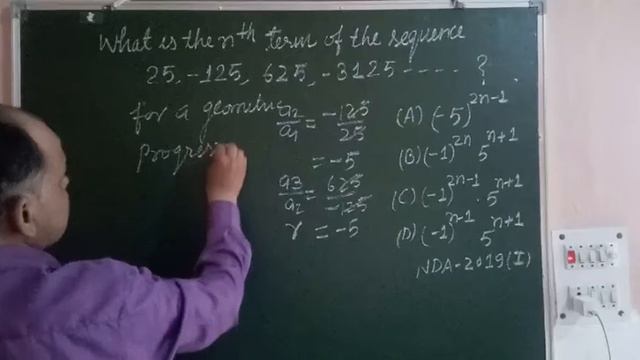 What is the nth term of the sequence
25, -125, 625, -3125 ---- ?
for a geometric
Progres
a2/a1 = -125/25
= -5
a3/a2 = 625/-125
r = -5
(A) (-5)^2n-1
(B) (-1)^2n 5^n+1
(C) (-1)^2n-1 . 5^n+1
(D) (-1)^n-1 5^n+1
NDA-2019(I)